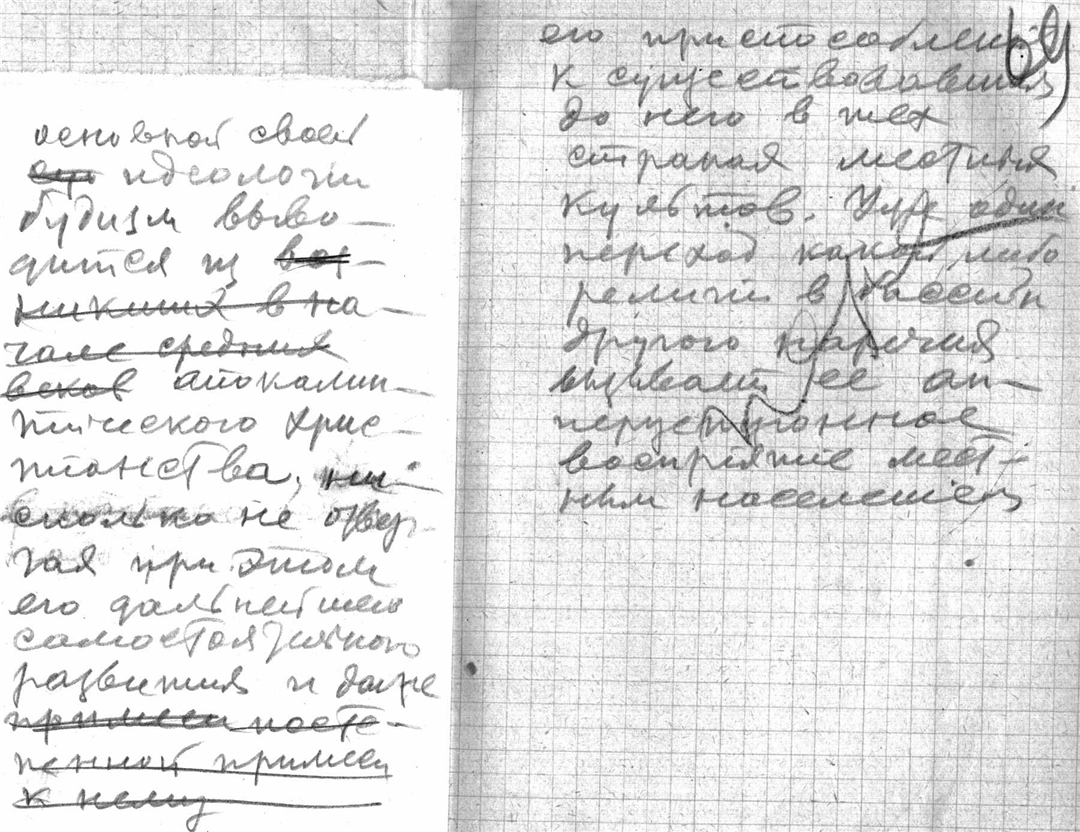 основной своей
его идеологии
будизм выво-
дится из воз-
никших в на-
чале средних
веков апокалип-
тического хрис-
тианства, ни-
сколько не отвер
гая при этом
его дальнейшего
самостоятельного
развития и даже
примеси посте-
пенной примеси
к нему
69
его приспособлений
к существовавшим
до него в тех
странах местных
культов. Уже один
переход какой либо
религии в
другого наречия
вызывает ее ап-
перцепционное
восприятие мест-
ным населением